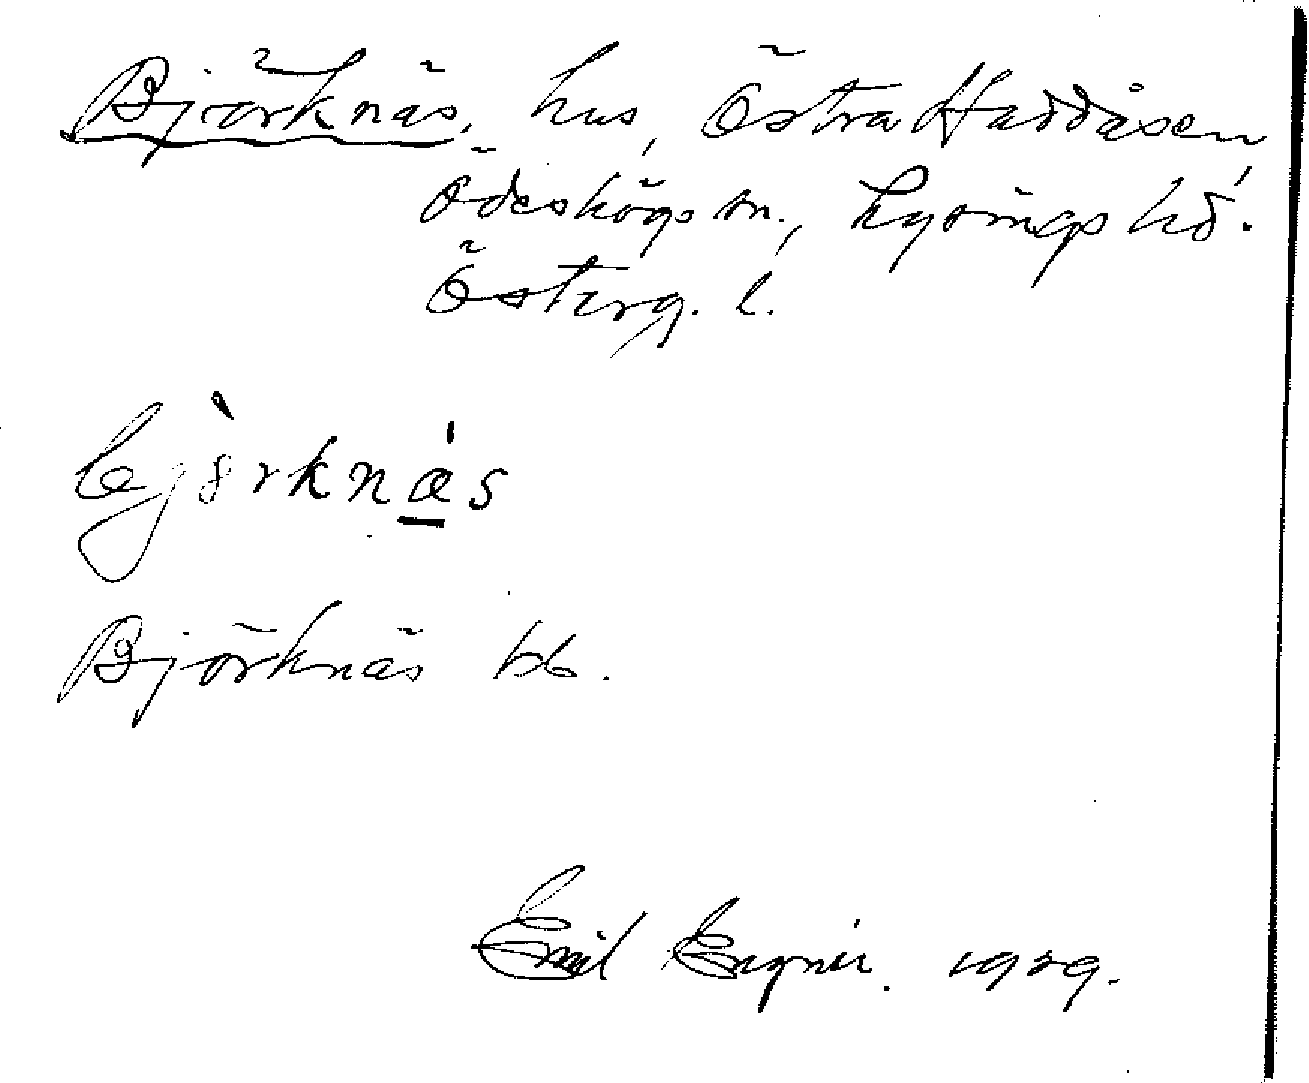 Björknäs, hus, Östra Haddåsen,
Ödeshögs sn., Lysings hd.
Österg. l.
bjö̀rknä́s
Björknäs bb.
Emil 1929.